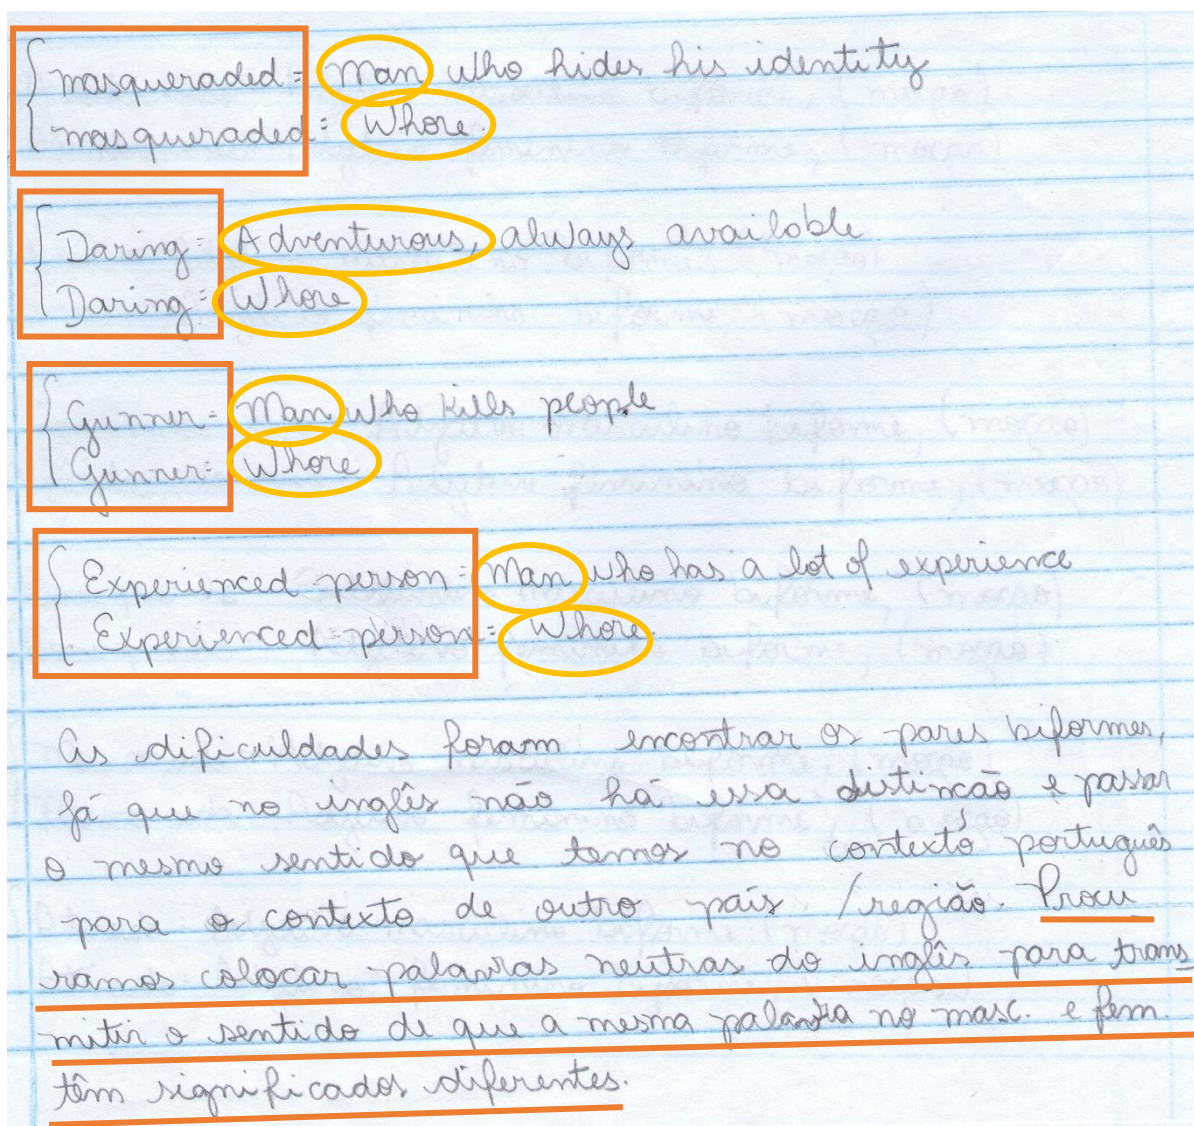 masqueraded = Man who hides his identity
masqueraded = Whore.
Daring = Adventurous, always available
Daring = Whore
Gunner = Man who kills people
Gunner = Whore
Experienced person = Man who has a lot of experience
Experienced-person = Whore.
As dificuldades foram encontrar os pares biformes,
já que no inglês não há essa distinção e passar
o mesmo sentido que temos no contexto português
para o contexto de outro país /região. Procu
ramos colocar palavras neutras do inglês para trans
mitir o sentido de que a mesma palavra no masc. e fem.
têm significados diferentes.